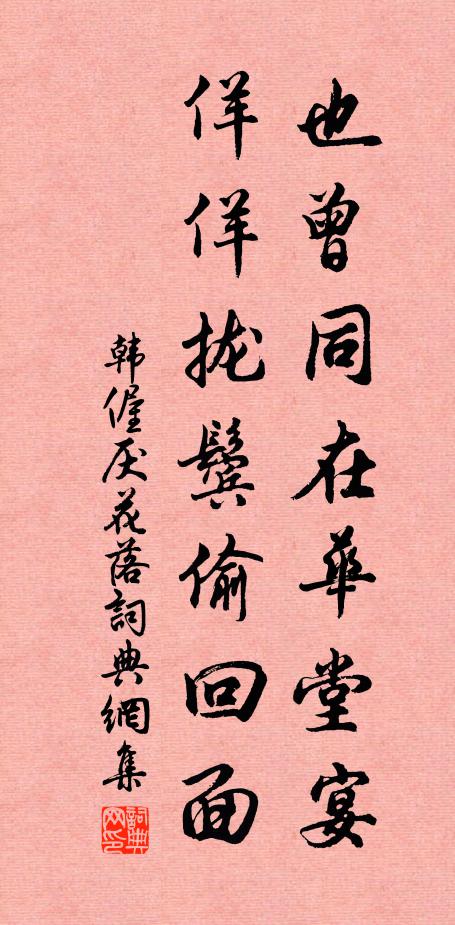 也曾同在华堂宴
佯佯拢鬓偷回面
韩偓厌花落詞典網集
詞典网印